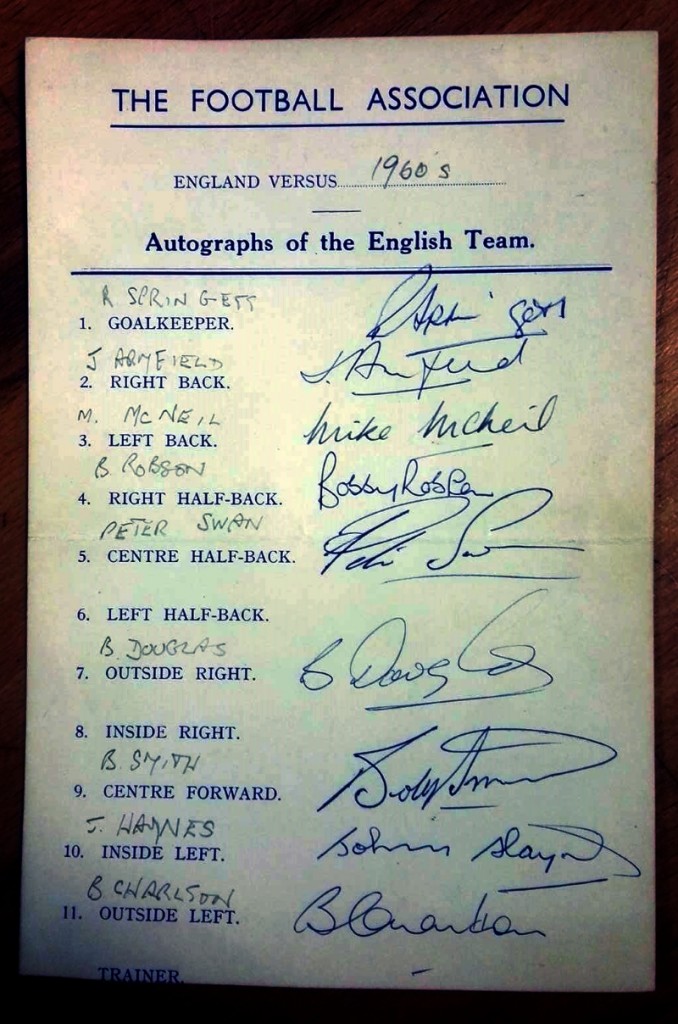 THE FOOTBALL ASSOCIATION
ENGLAND VERSUS 1960s
Autographs of the English Team.
R SPRINGETT
1. GOALKEEPER.
J ARMFIELD
2. RIGHT BACK. J. Armfield
M. McNEIL
3. LEFT BACK. Mike McNeil
B ROBSON
4. RIGHT HALF-BACK. Bobby Robson
PETER SWAN
5. CENTRE HALF-BACK. Peter Swan
6. LEFT HALF-BACK.
B. DOUGLAS
7. OUTSIDE RIGHT. B Douglas
8. INSIDE RIGHT.
B. SMITH
9. CENTRE FORWARD. Bobby Smith
J. HAYNES
10. INSIDE LEFT. Johnny Haynes
B CHARLSTON
11. OUTSIDE LEFT. B Charlton
TRAINER.